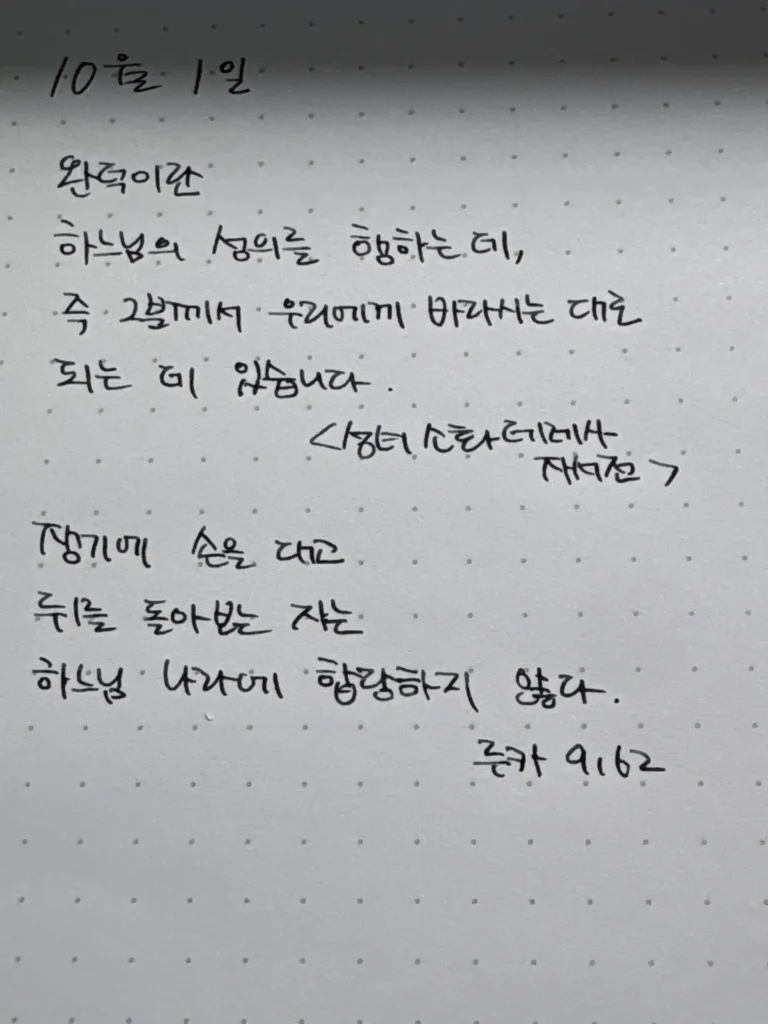 10월 1일
완덕이란
하느님의 성의를 행하는 데,
즉 그분께서 우리에게 바라시는 대로
되는 데 있습니다.
<성녀 소화 데레사
자서전>
쟁기에 손을 대고
뒤를 돌아보는 자는
하느님 나라에 합당하지 않다.
루카 9,62